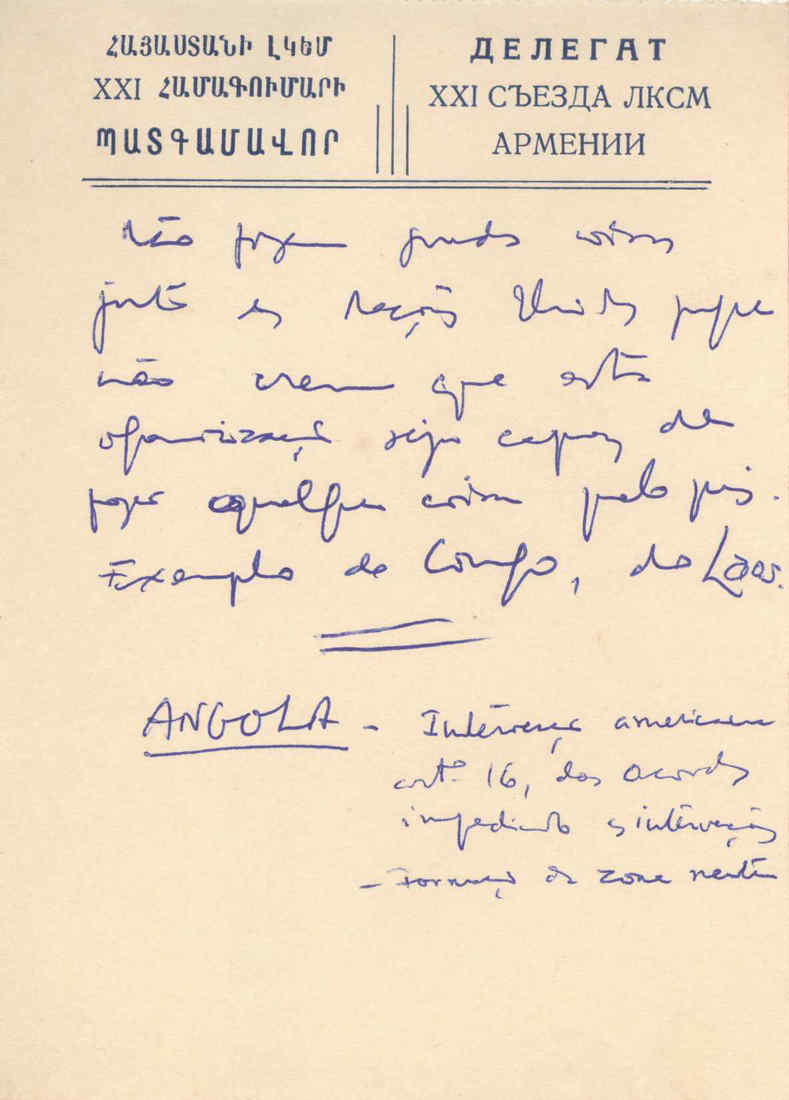 ՀԱՅԱՍՏԱՆԻ ԼԿԵՄ
XXI ՀԱՄԱԳՈՒՄԱՐԻ
ՊԱՏԳԱՄԱՎՈՐ
ДЕЛЕГАТ
XXI СЪЕЗДА ЛКСМ
АРМЕНИИ
Não fazem grandes coisas
junto às Nações Unidas porque
não creem que esta
organização seja capaz de
fazer qualquer coisa pelo país.
Exemplo do Congo, do Laos.
ANGOLA - Intervenção americana
16, dos acordos
impedindo as intervenções
- Formação de zona neutra